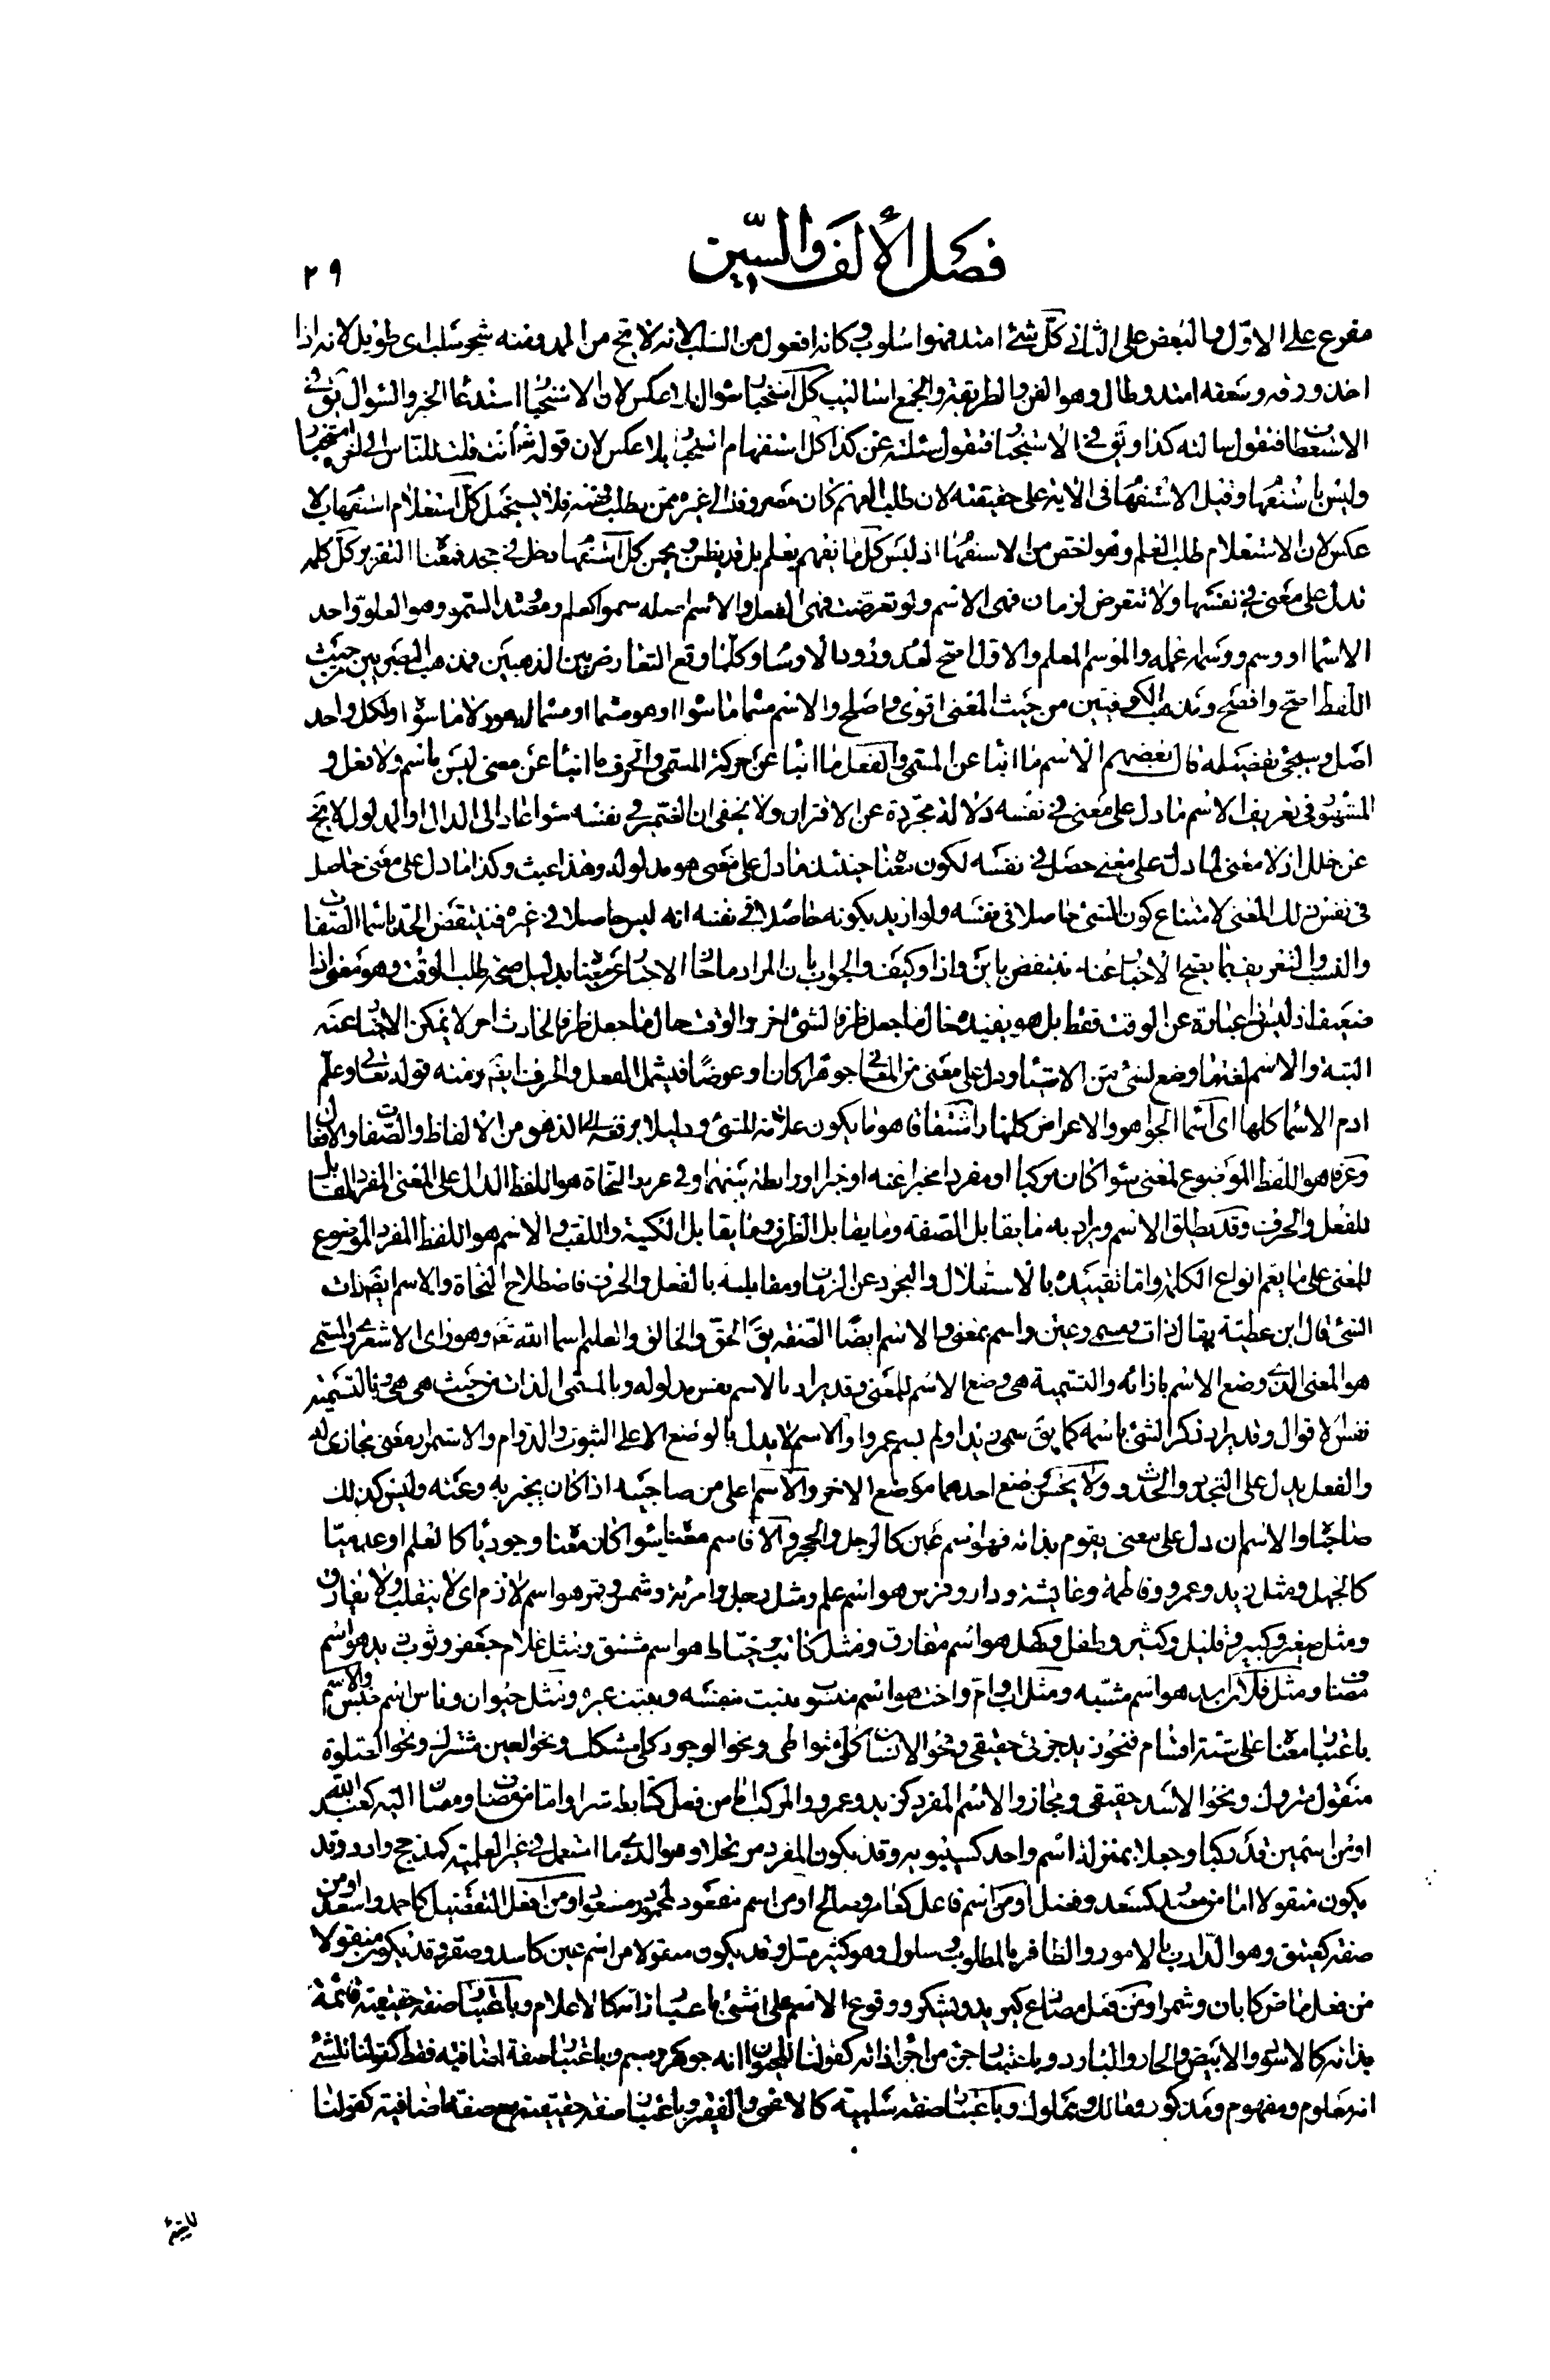 فصل الألف والسين
٢٩
متفرع على الاول والبعض على الثاني كل شئ امتد فهو اسلوب وكانه افعول من السلب لانه لا يخ من المد ومنه شجر سلب اى طويل لانه اذا
اخذ ورقه وسعفه امتد وطال وهو الفن والطريقة والجمع اساليب كل استخبار سؤال بلا عكس لان الاستخبار استدعاء الخبر والسؤال يق في
الاستعطاف فتقول سالته كذا ويق في الاستخبار فتقول سئلته عن كذا كل استفهام استخبار بلا عكس لان قوله تعالى أانت قلت للناس الى اخره استخبار
وليس باستفهام وقيل الاستفهام فى الآية على حقيقته لان طلب الفهم كان مصروفا الى غيره ممن يطلب فهمه فلا يستحيل كل استعلام استفهام بلا
عكس لان الاستعلام طلب العلم وهو اخص من الاستفهام اذ ليس كل ما يفهم يعلم بل قد يظن ويخمن كل استفهام دخل في جحد فمعناه التقرير كل كلمة
تدل على معنى في نفسها ولا تتعرض لزمان فهى الاسم ولو تعرضت فهى الفعل والاسم اصله سمو كعلم ومصدره السمو وهو العلو واحد
الاسماء او وسم ووسمه اعلمه والموسم المعلم والاول اصح لعدم ورود الاوسام وكلما وقع التعارض بين المذهبين فمذهب البصريين من حيث
اللفظ اصح وافصح ومذهب الكوفيين من حيث المعنى اقوى واصلح والاسم مسماه ما سواه او هو مسماه او مسماه لا هو ولا ما سواه ولكل واحد
اصل وسيجئ تفصيله قال بعضهم الاسم ما انبأ عن المسمى والفعل ما انبأ عن حركة المسمى والحرف ما انبأ عن معنى ليس باسم ولا فعل و
المشهور فى تعريف الاسم ما دل على معنى في نفسه دلالة مجردة عن الاقتران ولا يخفى ان الضمير في نفسه سواء عاد الى الدال او المدلول لا يخ
عن خلل اذ لا معنى لما دل على معنى حصل في نفسه لكون معناه حينئذ ما دل على معنى هو مدلوله وهذا عبث وكذا ما دل على معنى حاصل
فى نفس ذلك المعنى لامتناع كون الشئ حاصلا فى نفسه ولو اريد بكونه حاصلا في نفسه انه ليس حاصلا في غيره فينتقض الحد باسماء الصفات
والنسب والتعريف بما يصح الاخبار عنه ينتقض باين واذا وكيف والجواب بان المراد ما جاز الاخبار عن معناه بدليل صحة طلب الوقت وهو معنى اذا
ضعيف اذ ليس اذا عبارة عن الوقت فقط بل هو بقيد حال ما جعل ظرفا لشئ اخر والوقت حال ما جعل ظرفا لحادث اخر لا يمكن الاخبار عنه
البتة والاسم لغة ما وضع لشئ من الاشياء ودل على معنى من المعاني جوهرا كان او عرضا فيشمل الفعل والحرف ايضا ومنه قوله تعالى وعلم
ادم الاسماء كلها اى اسماء الجواهر والاعراض كلها واشتقاقا هو ما يكون علامة للشئ ودليلا يرفعه الى الذهن من الالفاظ والصفات والافعال
وعرفا هو اللفظ الموضوع لمعنى سواء كان مركبا او مفردا مخبرا عنه او خبرا او رابطة بينهما وفي عرف النحاة هو اللفظ الدال على المعنى المفرد المقابل
للفعل والحرف وقد يطلق الاسم ويراد به ما يقابل الصفة وما يقابل الظرف وما يقابل الكنية واللقب والاسم هو اللفظ المفرد الموضوع
للمعنى على ما يعم انواع الكلمة واما تقييده بالاستقلال والتجرد عن الزمان ومقابلته بالفعل والحرف فاصطلاح النحاة والاسم ايضا ذات
الشئ قال ابن عطية يقال ذات ومسمى وعين واسم بمعنى والاسم ايضا الصفة يق الحق والخالق والعليم اسماء الله تعه وهو راى الاشعرى والمسمى
هو المعنى الذى وضع الاسم بازائه والتسمية هى وضع الاسم للمعنى وقد يراد بالاسم نفس مدلوله وبالمسمى الذات من حيث هى هى وبالتسمية
نفس الاقوال وقد يراد ذكر الشئ باسمه كما يق سمى زيدا ولم يسم عمروا والاسم لا يدل بالوضع الا على الثبوت والدوام والاستمرار معنى مجازى له
والفعل يدل على التجدد والحدوث ولا يحسن وضع احدهما موضع الاخر والاسم اعلى من صاحبيه اذا كان يخبر به وعنه وليس كذلك
صاحباه والاسم ان دل على معنى يقوم بذاته فهو اسم عين كالرجل والحجر والا فاسم معنى سواء كان معناه وجوديا كالعلم او عدميا
كالجهل ومثل زيد وعمرو وفاطمة وعايشة ودار وفرس هو اسم علم ومثل رجل وامرئة وشمس وقمر هو اسم لازم اى لا ينقلب ولا يفارق
ومثل صغير وكبير وقليل وكثير وطفل وكهل هو اسم مفارق ومثل كاتب وخياط هو اسم مشتق ومثل غلام جعفر وثوب زيد هو اسم
مضاف ومثل فلان اسد هو اسم مشبه ومثل اب وام واخت هو اسم منسوب يثبت بنفسه ويثبت غيره ومثل حيوان وناس اسم جنس والاسم
باعتبار معناه على ستة اقسام فنحو زيد جزئى حقيقى ونحو الانسان كلى متواطى ونحو الوجود كلى مشكك ونحو العين مشترك ونحو الصلوة
منقول متروك ونحو الاسد حقيقى ومجاز والاسم المفرد كزيد وعمرو والمركب اما من فعل كتابط شرا واما من مضاف ومضاف اليه كعبد الله
او من اسمين قد ركبا وجعلا بمنزلة اسم واحد كسيبويه وقد يكون المفرد مرتجلا وهو الذى ما استعمل في غير العلمية كمذحج وادد وقد
يكون منقولا اما من مصدر كسعد وفضل او من اسم فاعل كعامر وصالح او من اسم مفعول كمحمود ومسعود او من افعل التفضيل كاحمد واسعد او من
صفة كعتيق وهو الدارب بالامور والظافر بالمطلوب وسلول وهو كثير السل وقد يكون منقولا من اسم عين كاسد وصقر وقد يكون منقولا
من فعل ماض كابان وشمر او من فعل مضارع كيزيد ويشكر ووقوع الاسم على الشئ باعتبار ذاته كالاعلام وباعتبار صفة حقيقية قائمة
بذاته كالاسود والابيض والحار والبارد وباعتبار جزء من اجزاء ذاته كقولنا للحيوان انه جوهر وجسم وباعتبار صفة اضافية فقط كقولنا للشئ
انه معلوم ومفهوم ومذكور ومالك ومملوك وباعتبار صفة سلبية كالاعمى والفقير وباعتبار صفة حقيقية مع صفة اضافية كقولنا